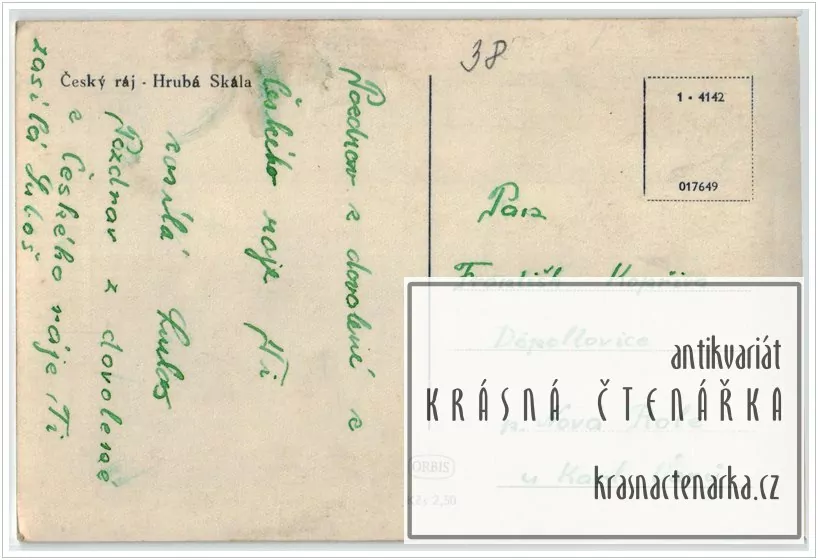 38
Český ráj - Hrubá Skála
1 - 4142
017649
Pozdrav z dovolené z
Českého raje Ti
zasílá Luboš
Pozdrav z dovolené
z Českého ráje, Ti
zasílá Luboš
Pan
František Kopřiva
Děpoltovice
p. Nova Role
u
ORBIS
Kčs 2,50
antikvariát
KRÁSNÁ ČTENÁŘKA
krasnactenarka.cz